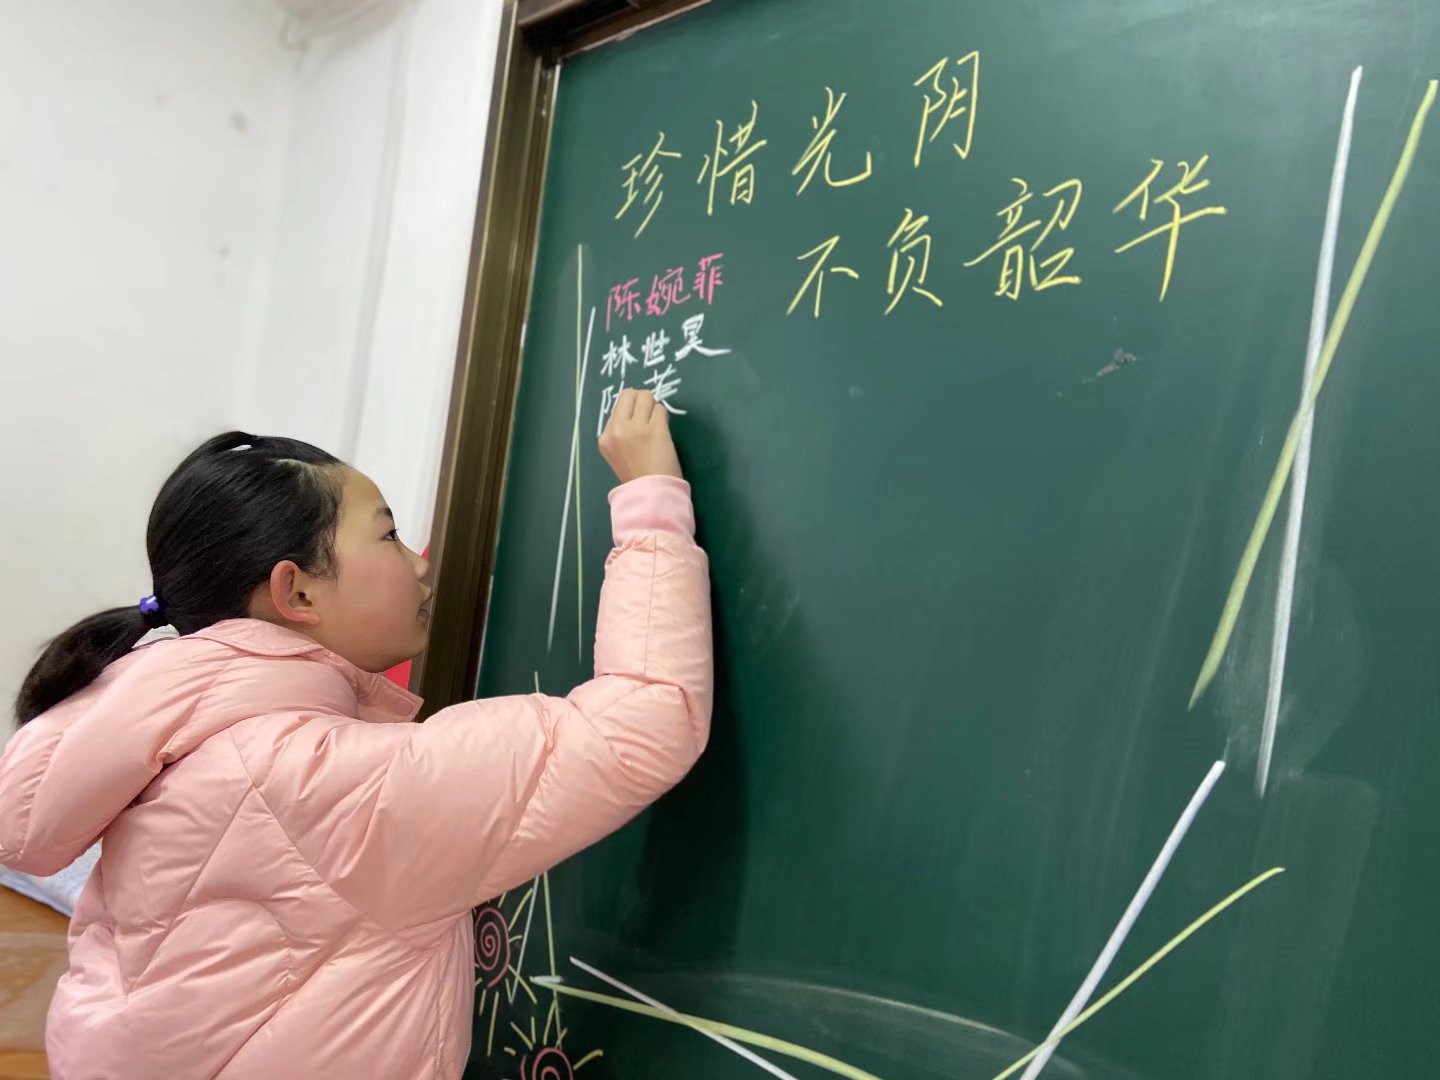 珍惜光阴
不负韶华
陈婉菲
林世昊
陈芙